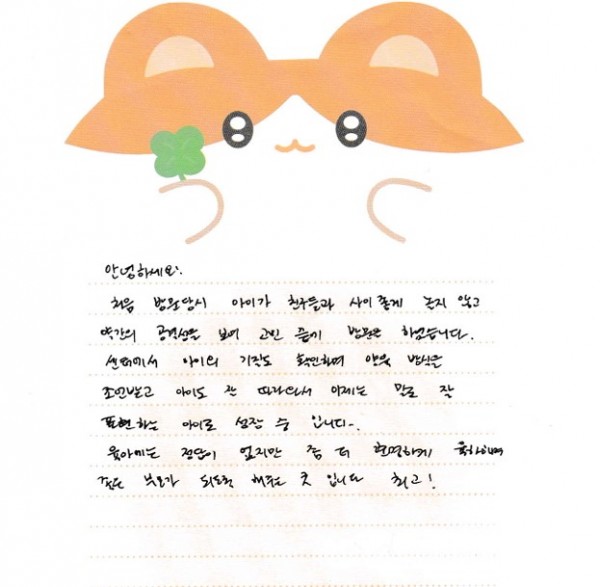 안녕하세요.
처음 방문당시 아이가 친구들과 사이좋게 놀지 않고
약간의 공격성을 보여 고민 끝에 방문을 하였습니다.
센터에서 아이의 기질도 확인하며 양육 방식을
조언받고 아이도 잘 따라와서 이제는 말로 잘
표현하는 아이로 성장 중 입니다.
육아에는 정답이 없지만 좀 더 현명하게 육아하며
좋은 부모가 되도록 해주는 곳 입니다 최고!